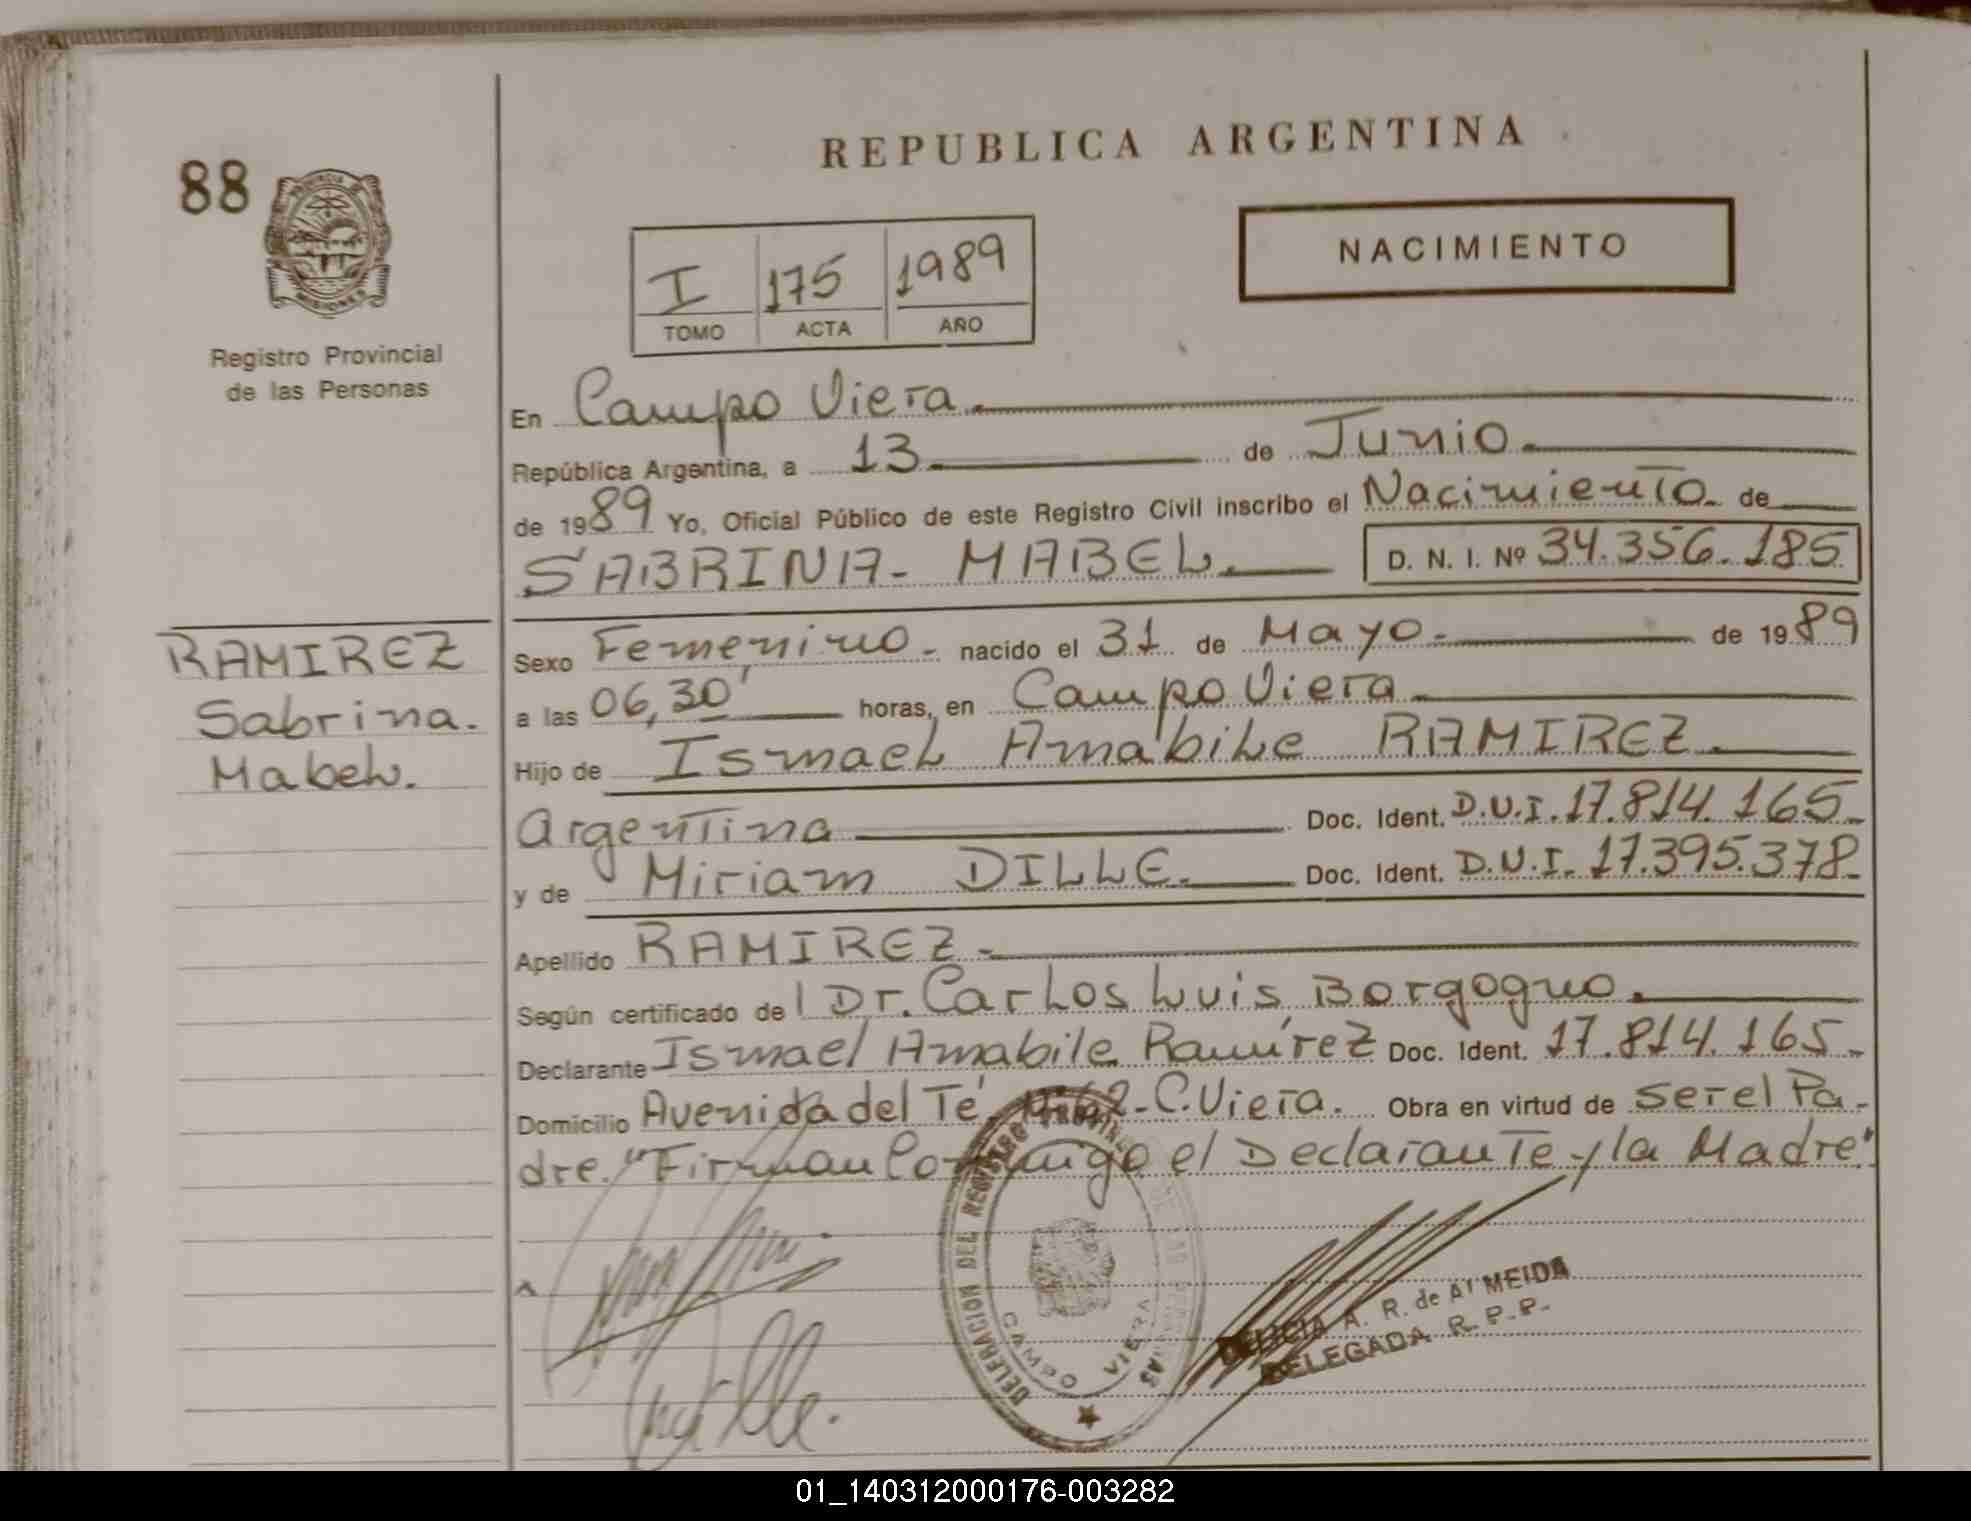 REPUBLICA ARGENTINA
88
PROVINCIA DE
MISIONES
NACIMIENTO
I 175 1989
TOMO ACTA AÑO
Registro Provincial
de las Personas
En Campo Viera.
República Argentina, a 13 de Junio.
de 1989 Yo, Oficial Público de este Registro Civil inscribo el Nacimiento de
SABRINA - MABEL. D. N. I. Nº 34.356.185
RAMIREZ
Sabrina.
Mabel.
Sexo Femenino - nacido el 31 de Mayo - de 1989
a las 06,30' horas, en Campo Viera
Hijo de Ismael Amabile RAMIREZ.
Argentina Doc. Ident. D.N.I. 17.814.165-
y de Miriam DILLE. Doc. Ident. D.N.I. 17.395.378-
Apellido RAMIREZ-
Según certificado del Dr. Carlos Luis Borgogno.
Declarante Ismael Amabile Ramírez Doc. Ident. 17.814.165-
Domicilio Avenida del Té, - C. Viera. Obra en virtud de ser el Pa-
dre. "Firman Conmigo el Declarante y la Madre"
DELEGACION DEL REGISTRO DE LAS PERSONAS
CAMPO VIERA
A. R. de ALMEIDA
DELEGADA R.P.P.-
01_140312000176-003282